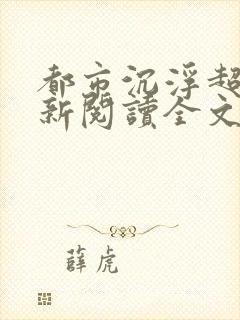 都市沉浮超
新閱讀全文
薛虎